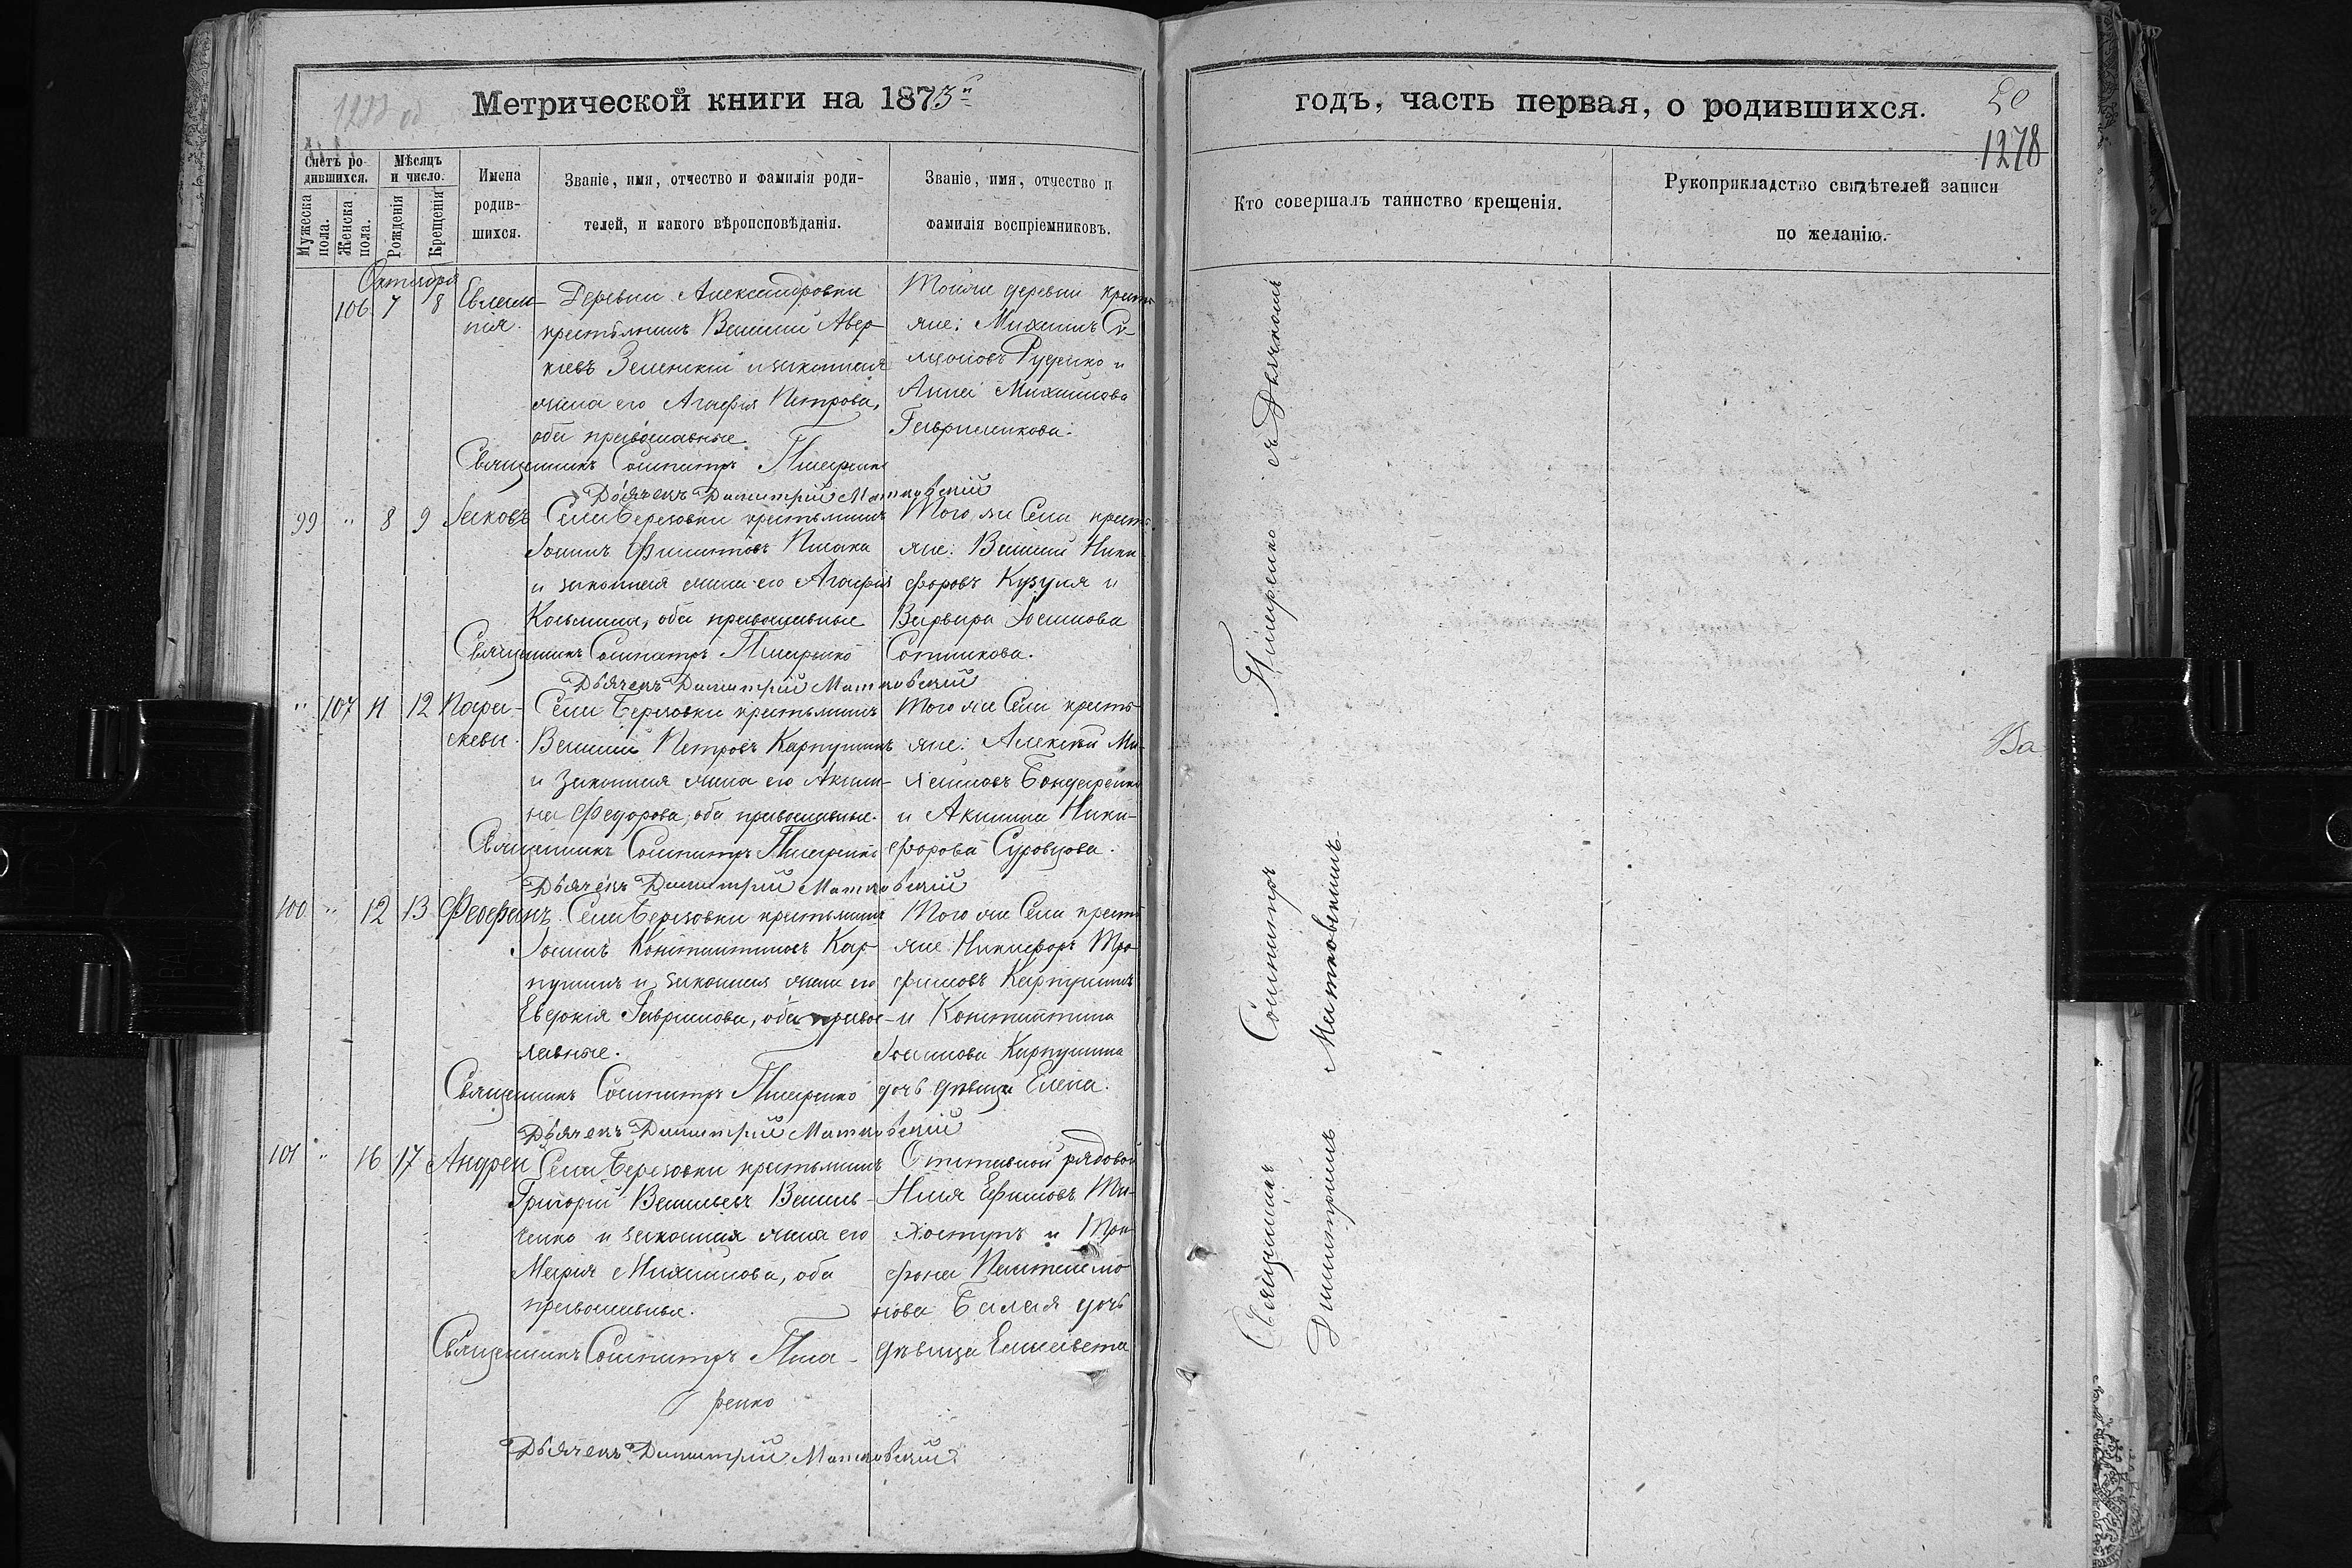 Метрической книги на 1873й
годъ, часть первая, о родившихся.
1278
Счетъ ро-
дившихся.
Мужеска пола.
Женска пола.
Мѣсяцъ
и число.
Рожденія
Крещенія
Имена
родив-
шихся.
Званіе, имя, отчество и фамилія роди-
телей, и какого вѣроисповѣданія.
Званіе, имя, отчество и
фамилія воспріемниковъ.
Кто совершалъ таинство крещенія.
Рукоприкладство свидѣтелей записи
по желанію.
Октября
106 7 8 Евлам-
пія.
Деревни Александровки
крестьянинъ Василій Авер-
кіевъ Зеленскій и законная
жена его Агафія Петрова,
оба православные.
Тойже деревни кресть-
яне: Михаилъ Си-
моновъ Руденко и
Анна Михаилова
Гавриленкова.
Священникъ Сосипатръ Писаренко
Дьячекъ Димитрій Матковскій
99 " 8 9 Іаковъ
Села Березовки крестьянинъ
Іоаннъ Филиповъ Плюка
и законная жена его Агафія
Косьмина, оба православные
Того же Села кресть-
яне: Василій Ники-
форовъ Кузуля и
Варвара Іоаннова
Сотникова.
Священникъ Сосипатръ Писаренко
Дьячекъ Димитрій Матковскій
" 107 11 12 Пара-
скева.
Села Березовки крестьянинъ
Василій Петровъ Карпушинъ
и законная жена его Акили-
на Федорова, оба православные.
Того же Села кресть-
яне: Алексѣй Ми-
хаиловъ Бондаренко
и Акилина Ники-
форова Суровцова.
Священникъ Сосипатръ Писаренко
Дьячекъ Димитрій Матковскій
100 " 12 13 Феофанъ
Села Березовки крестьянинъ
Іоаннъ Константиновъ Кар-
пушинъ и законная жена его
Евдокія Гавриилова, оба право-
славные.
Того же Села кресть-
яне Никифоръ Тро-
фимовъ Карпушинъ
и Константина
Іоаннова Карпушина
дочь дѣвица Елена.
Священникъ Сосипатръ Писаренко
Дьячекъ Димитрій Матковскій
101 " 16 17 Андрей
Села Березовки крестьянинъ
Григорій Васильевъ Василь-
ченко и законная жена его
Марія Михаилова, оба
православные.
Отставной рядовой
Илія Ефимовъ
и Три-
фона Пантелеимо-
нова Балая дочь
дѣвица Елисавета
Священникъ Сосипатръ Писа-
ренко
Дьячекъ Димитрій Матковскій.
Священникъ Сосипатръ Писаренко съ Дьячкомъ
Димитріемъ Матковскимъ.
Ва